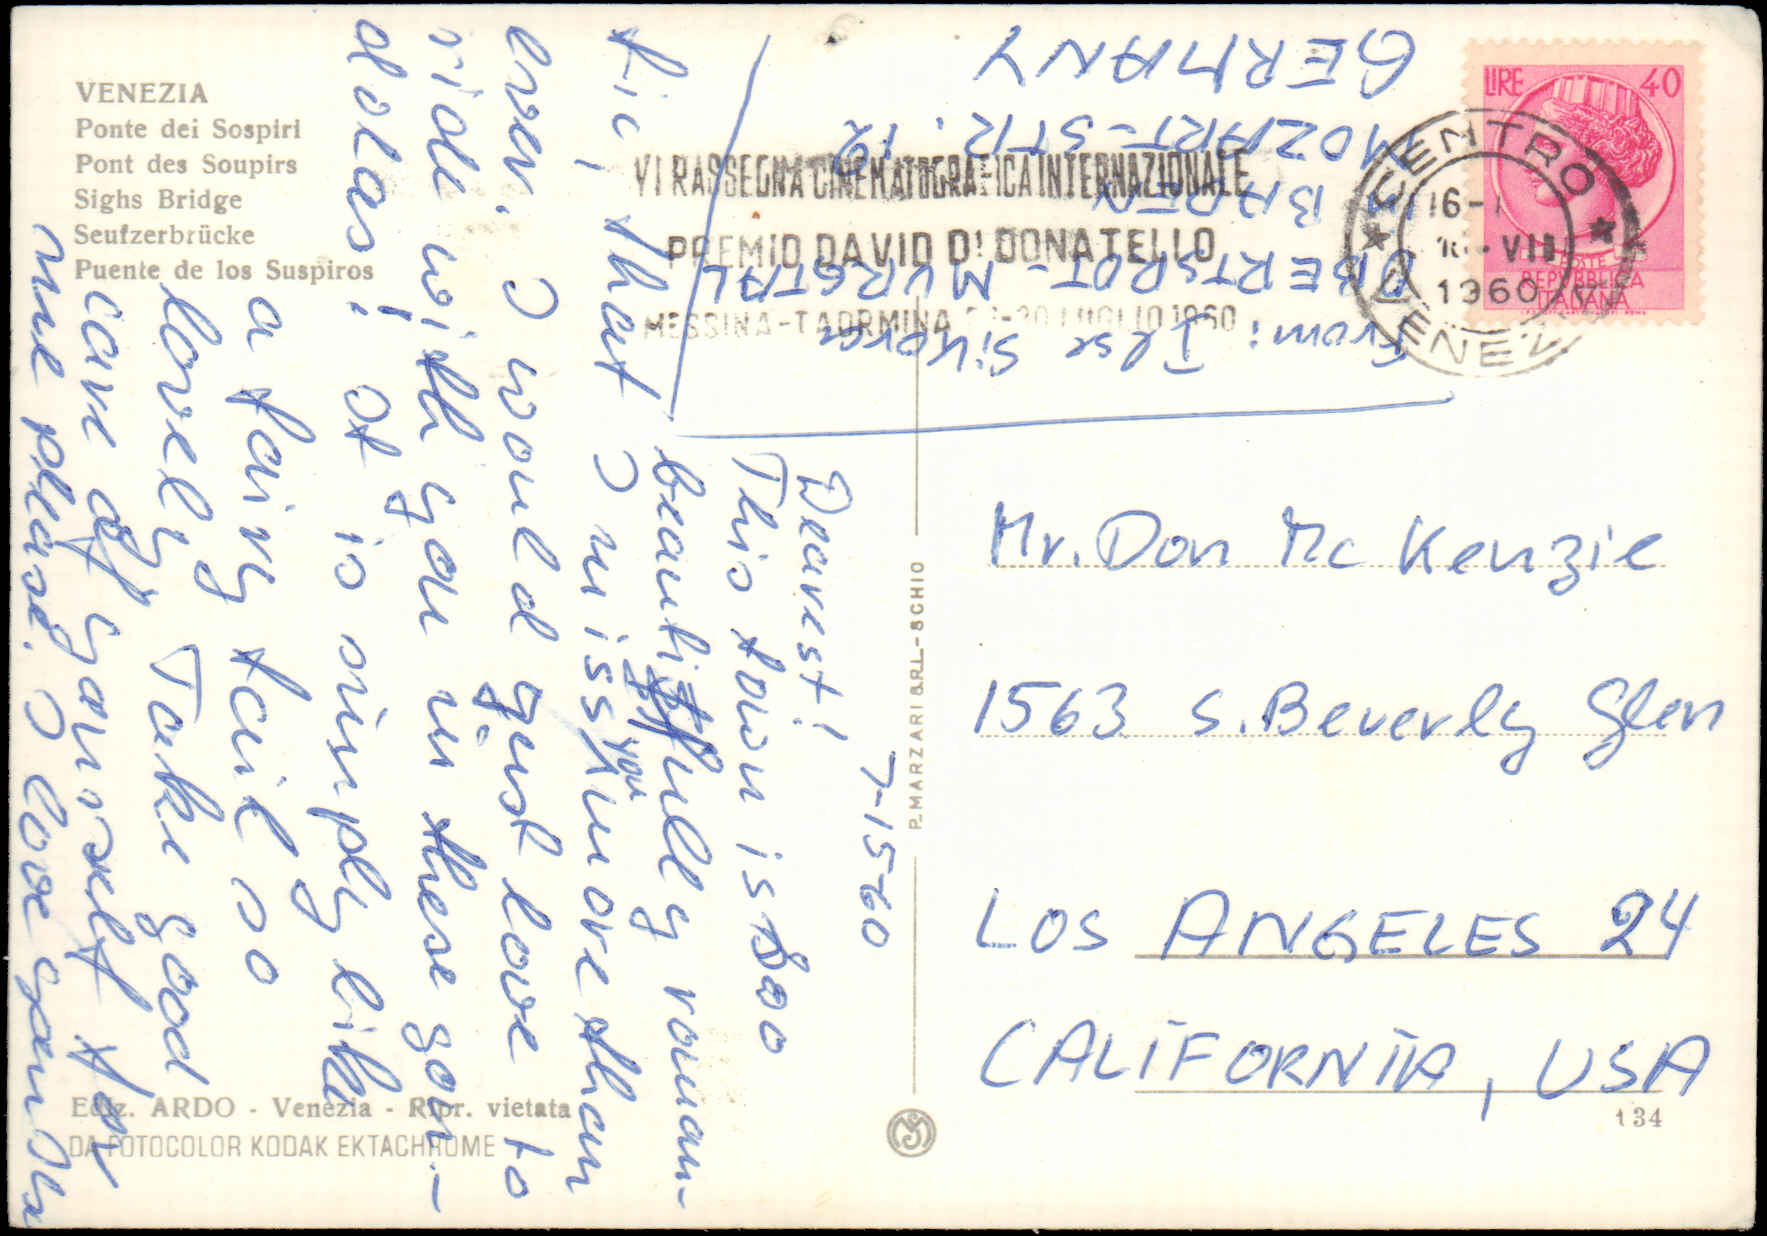 VENEZIA
Ponte dei Sospiri
Pont des Soupirs
Sighs Bridge
Seufzerbrücke
Puente de los Suspiros
7-15-60
Dearest!
This town is soo
beautifully roman-
tic, that I miss you more than
ever. I would just love to
ride with you in these gon-
dolas! It is simply like
a fairy tail so
lovely. Take good
care of yourself for
me please. I love you Ilse
From: Ilse
OBERTSROT-MURGTAL
BADEN
MOZART-STR. 12
GERMANY
VI RASSEGNA CINEMATOGRAFICA INTERNAZIONALE
PREMIO DAVID DI DONATELLO
MESSINA-TAORMINA LUGLIO 1960
LIRE 40
POSTE
REPUBBLICA
ITALIANA
CENTRO
16-
VII
1960
VENEZIA
Mr. Don Mc Kenzie
1563 S. Beverly Glen
LOS ANGELES 24
CALIFORNIA, USA
P. MARZARI S.R.L. - SCHIO
Ediz. ARDO - Venezia - Ripr. vietata
DA FOTOCOLOR KODAK EKTACHROME
134